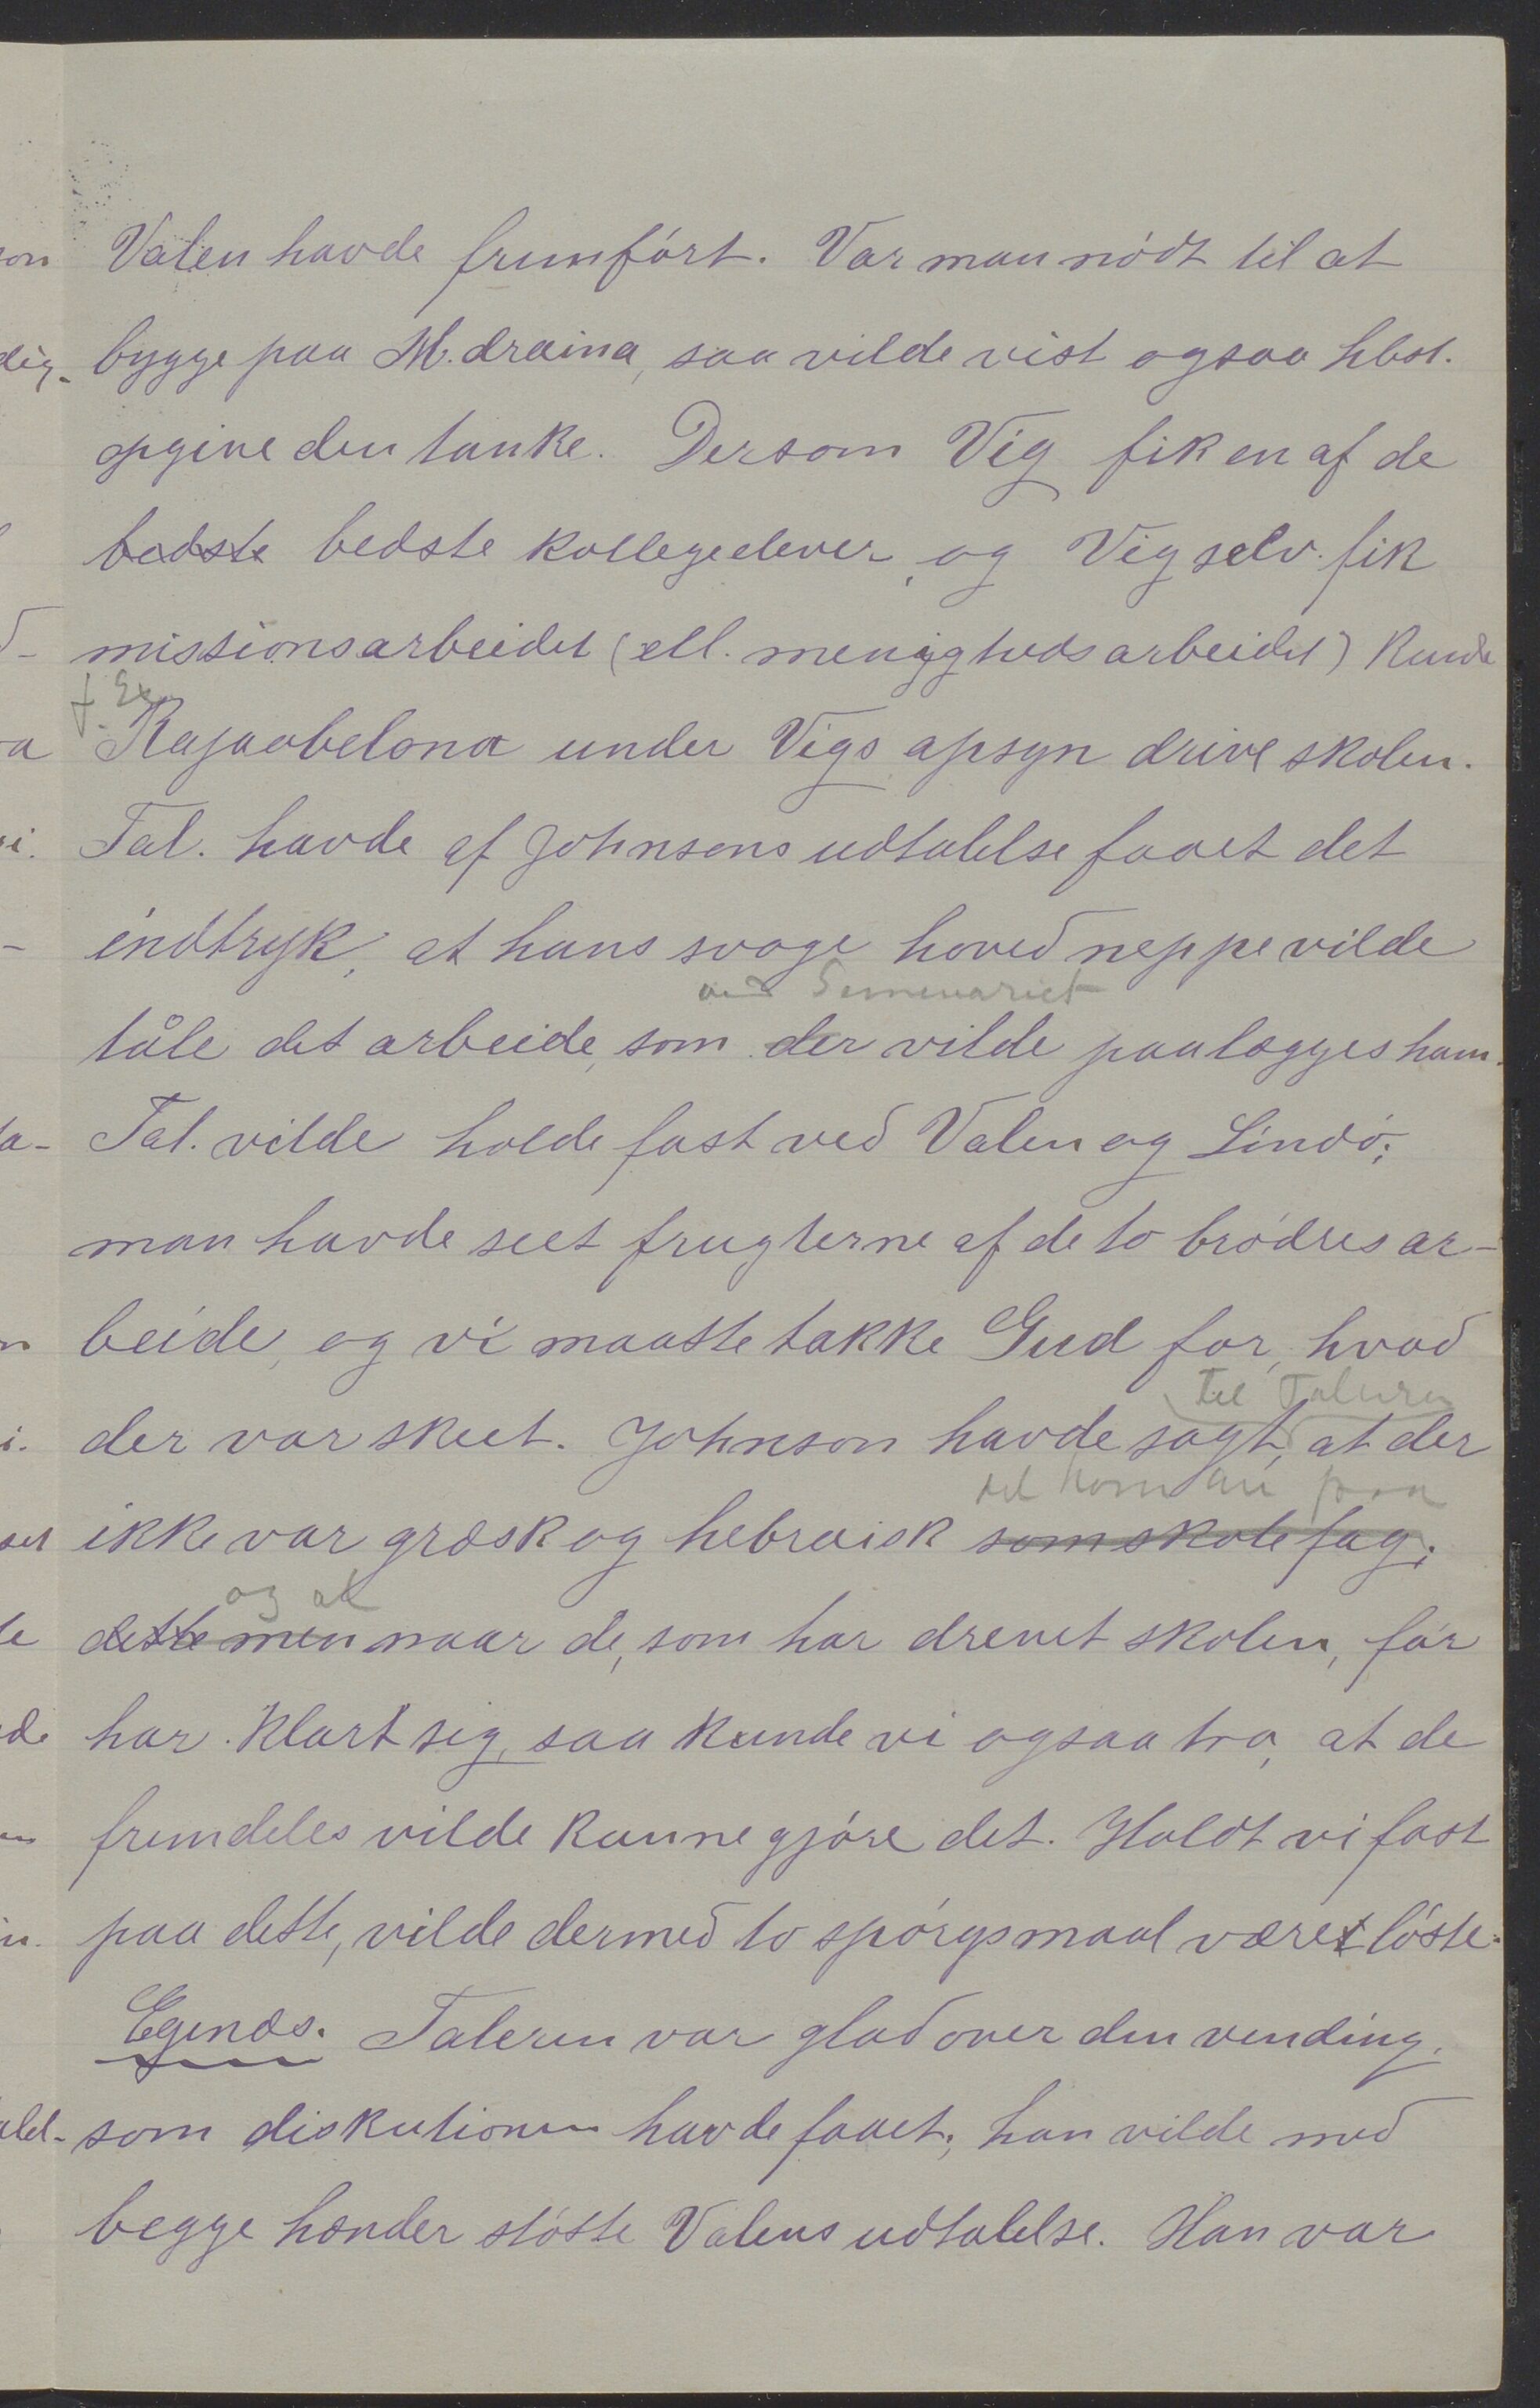 Valen havde fremført. Var man nødt til at
bygge paa M.draina, saa vilde vist ogsaa hbst.
opgive den tanke. Dersom Vig fik en af de
bedste bedste kollegeelever, og Vig selv fik
missionsarbeidet (ell. menighedsarbeidet) kunde
f. Ex.
Rajaobelona under Vigs opsyn drive skolen.
Tal. havde af Johnsons udtalelse faaet det
indtryk, at hans svage hoved neppe vilde
ved Seminariet
tåle det arbeide, som der vilde paalægges ham.
Tal. vilde holde fast ved Valen og Lindø;
man havde seet frugterne af de to brødres ar-
beide, og vi maatte takke Gud for, hvad
til Taleren
der var skeet. Johnson havde sagt, at der
det kom an paa
ikke var græsk og hebraisk som skolefag;
og at
dette men naar de, som har drevet skolen, før
har klart sig, saa kunde vi ogsaa tro, at de
fremdeles vilde kunne gjøre det. Holdt vi fast
paa dette, vilde dermed to spørgsmaal været løste.
Egenæs. Taleren var glad over den vending,
som diskutionen havde faaet; han vilde med
begge hænder støtte Valens udtalelse. Han var